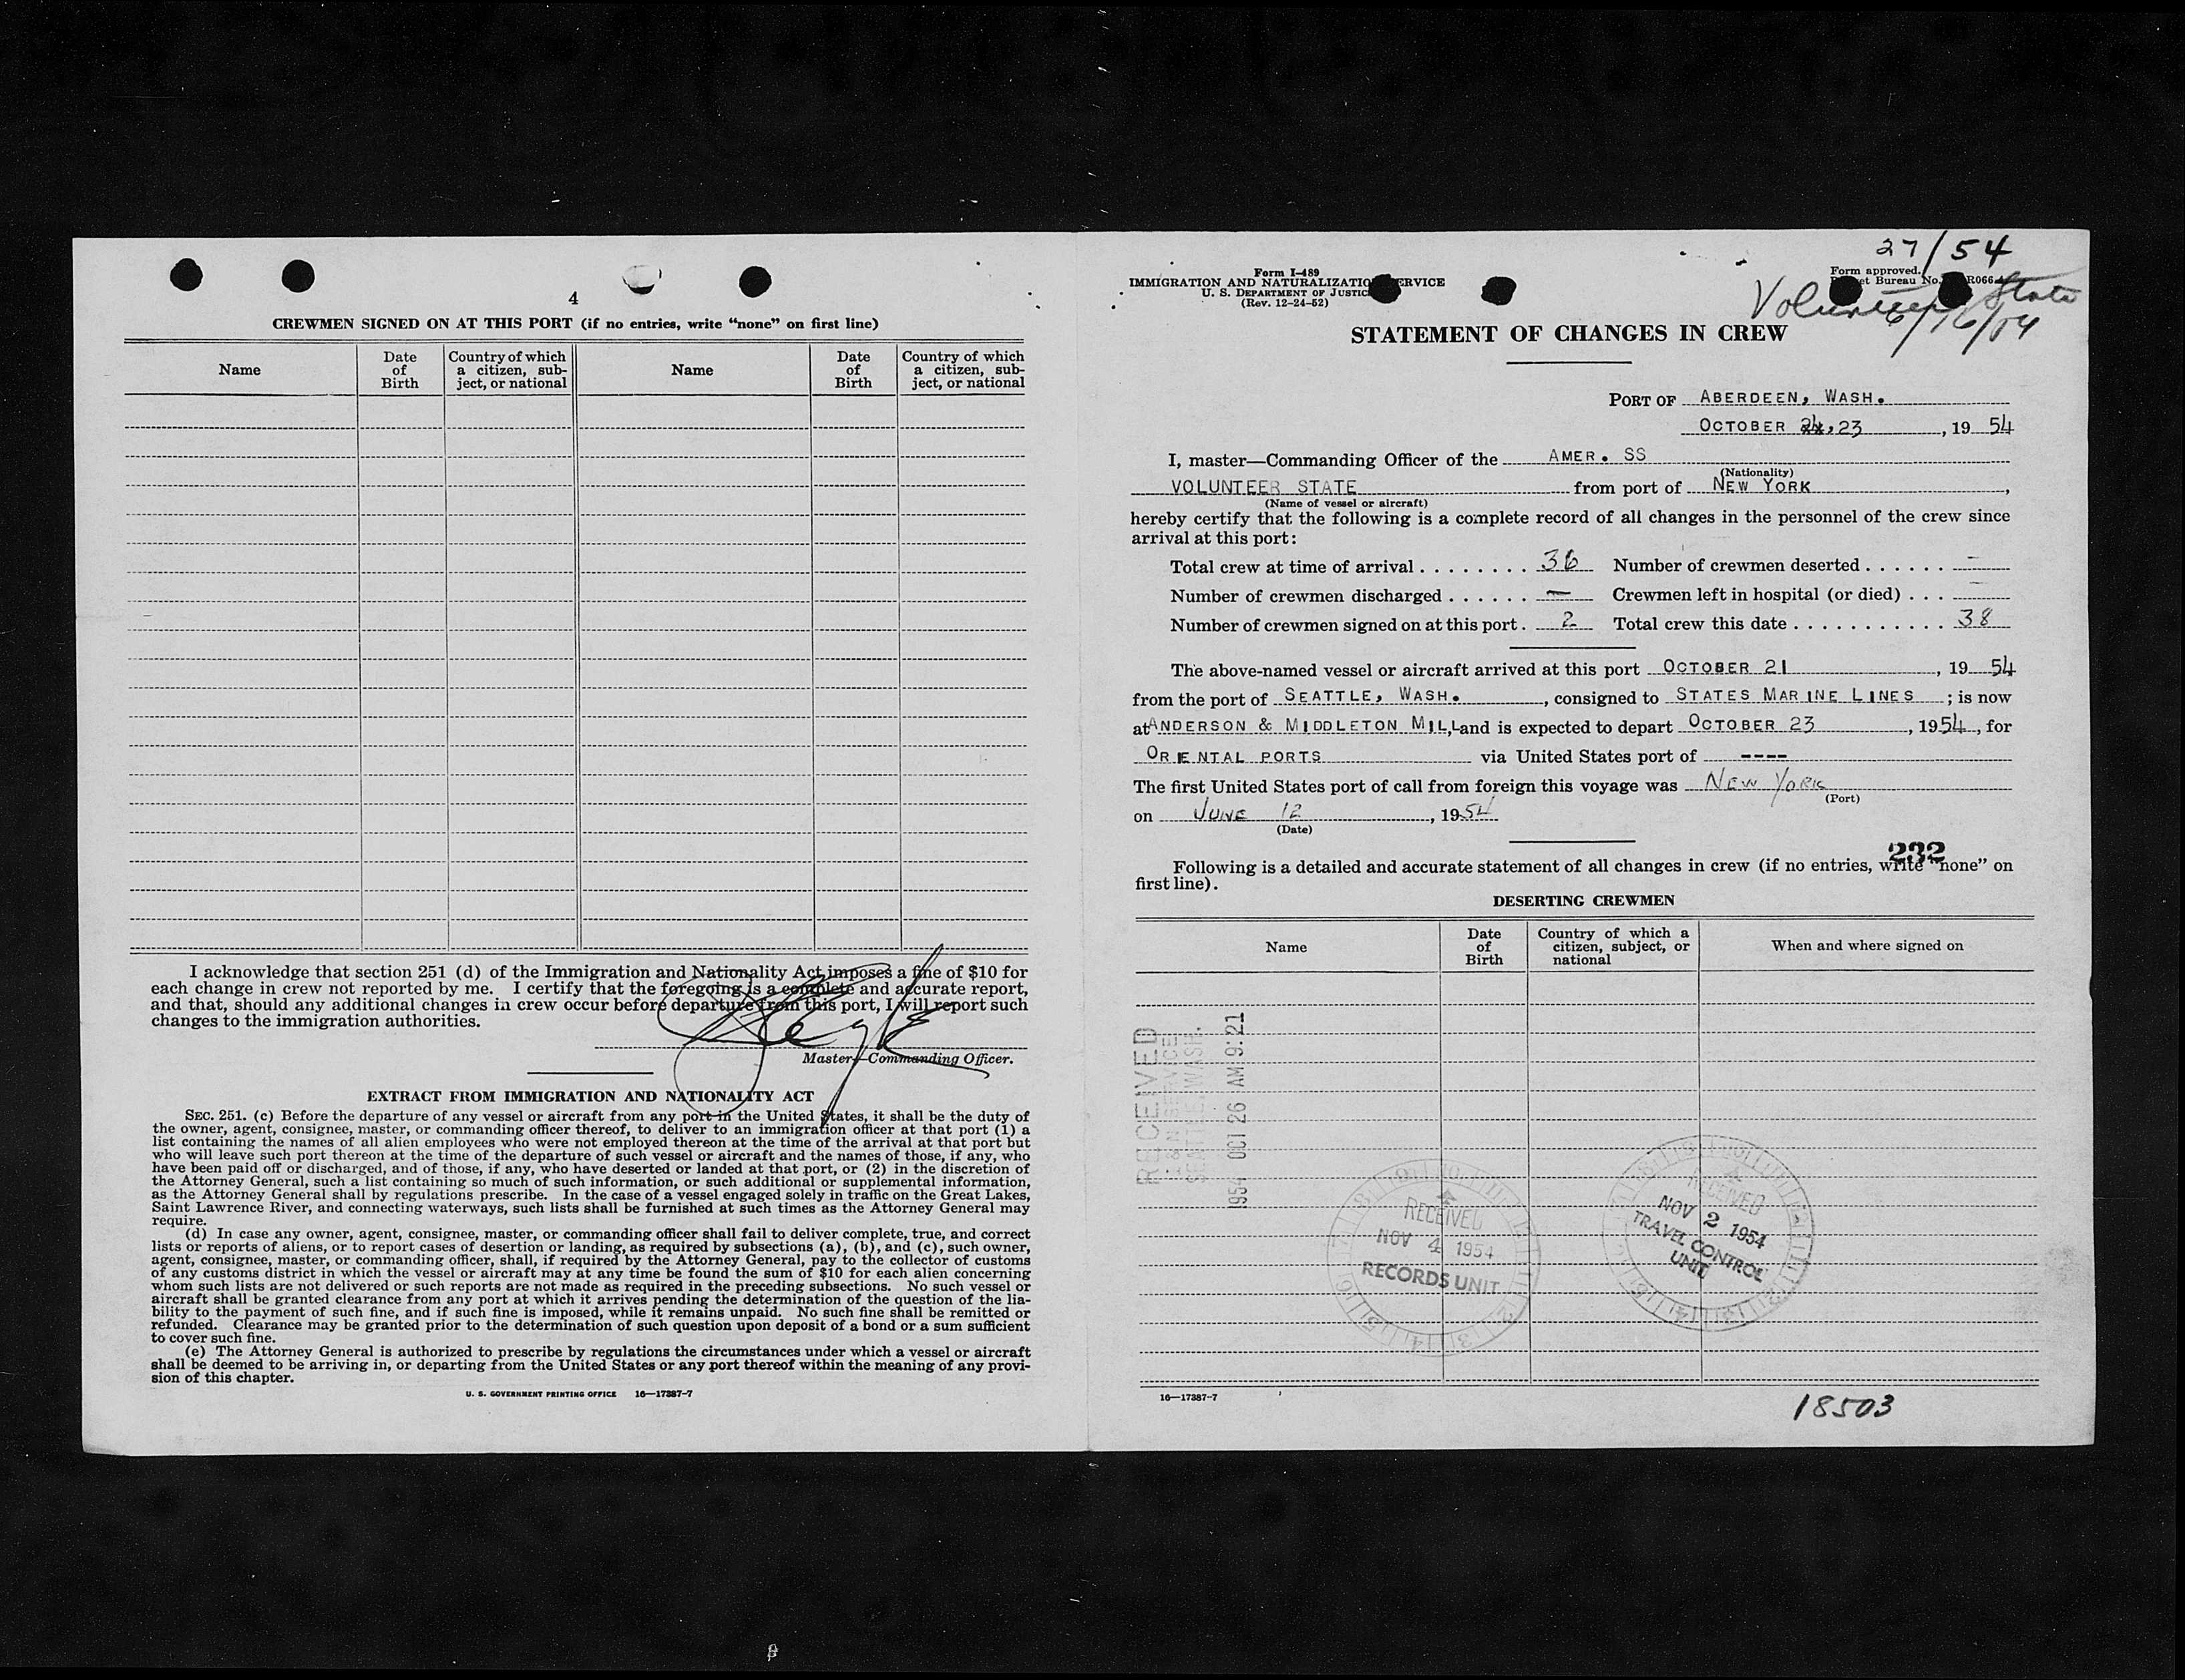 4
CREWMEN SIGNED ON AT THIS PORT (if no entries, write “none” on first line)
Name
Date of Birth
Country of which a citizen, sub-ject, or national
Name
Date of Birth
Country of which a citizen, sub-ject, or national
I acknowledge that section 251 (d) of the Immigration and Nationality Act imposes a fine of $10 for
each change in crew not reported by me. I certify that the foregoing is a complete and accurate report,
and that, should any additional changes in crew occur before departure from this port, I will report such
changes to the immigration authorities.
Master—Commanding Officer.
EXTRACT FROM IMMIGRATION AND NATIONALITY ACT
SEC. 251. (c) Before the departure of any vessel or aircraft from any port in the United States, it shall be the duty of
the owner, agent, consignee, master, or commanding officer thereof, to deliver to an immigration officer at that port (1) a
list containing the names of all alien employees who were not employed thereon at the time of the arrival at that port but
who will leave such port thereon at the time of the departure of such vessel or aircraft and the names of those, if any, who
have been paid off or discharged, and of those, if any, who have deserted or landed at that port, or (2) in the discretion of
the Attorney General, such a list containing so much of such information, or such additional or supplemental information,
as the Attorney General shall by regulations prescribe. In the case of a vessel engaged solely in traffic on the Great Lakes,
Saint Lawrence River, and connecting waterways, such lists shall be furnished at such times as the Attorney General may
require.
(d) In case any owner, agent, consignee, master, or commanding officer shall fail to deliver complete, true, and correct
lists or reports of aliens, or to report cases of desertion or landing, as required by subsections (a), (b), and (c), such owner,
agent, consignee, master, or commanding officer, shall, if required by the Attorney General, pay to the collector of customs
of any customs district in which the vessel or aircraft may at any time be found the sum of $10 for each alien concerning
whom such lists are not delivered or such reports are not made as required in the preceding subsections. No such vessel or
aircraft shall be granted clearance from any port at which it arrives pending the determination of the question of the lia-
bility to the payment of such fine, and if such fine is imposed, while it remains unpaid. No such fine shall be remitted or
refunded. Clearance may be granted prior to the determination of such question upon deposit of a bond or a sum sufficient
to cover such fine.
(e) The Attorney General is authorized to prescribe by regulations the circumstances under which a vessel or aircraft
shall be deemed to be arriving in, or departing from the United States or any port thereof within the meaning of any provi-
sion of this chapter.
U. S. GOVERNMENT PRINTING OFFICE 16—17387-7
27/54
Form I-489
IMMIGRATION AND NATURALIZATION SERVICE
U. S. DEPARTMENT OF JUSTICE
(Rev. 12-24-52)
Form approved.
Bureau No. R066
Volunteer State
6/16/54
STATEMENT OF CHANGES IN CREW
PORT OF ABERDEEN, WASH.
OCTOBER 23, 1954
I, master—Commanding Officer of the AMER. SS
(Nationality)
VOLUNTEER STATE from port of NEW YORK,
(Name of vessel or aircraft)
hereby certify that the following is a complete record of all changes in the personnel of the crew since
arrival at this port:
Total crew at time of arrival . . . . . . . . 36 Number of crewmen deserted . . . . . . –
Number of crewmen discharged . . . . . . — Crewmen left in hospital (or died) . . . –
Number of crewmen signed on at this port . 2 Total crew this date . . . . . . . . . . . 38
The above-named vessel or aircraft arrived at this port OCTOBER 21, 1954
from the port of SEATTLE, WASH., consigned to STATES MARINE LINES ; is now
at ANDERSON & MIDDLETON MILL, and is expected to depart OCTOBER 23, 1954, for
ORIENTAL PORTS via United States port of ----
The first United States port of call from foreign this voyage was NEW YORK
(Port)
on JUNE 12, 1954
(Date)
232
Following is a detailed and accurate statement of all changes in crew (if no entries, write “none” on
first line).
DESERTING CREWMEN
Name
Date of Birth
Country of which a citizen, subject, or national
When and where signed on
RECEIVED
SEATTLE, WASH.
1954 OCT 26 AM 9:21
RECEIVED
NOV 4 1954
RECORDS UNIT
RECEIVED
NOV 2 1954
TRAVEL CONTROL
UNIT
16—17387-7
18503